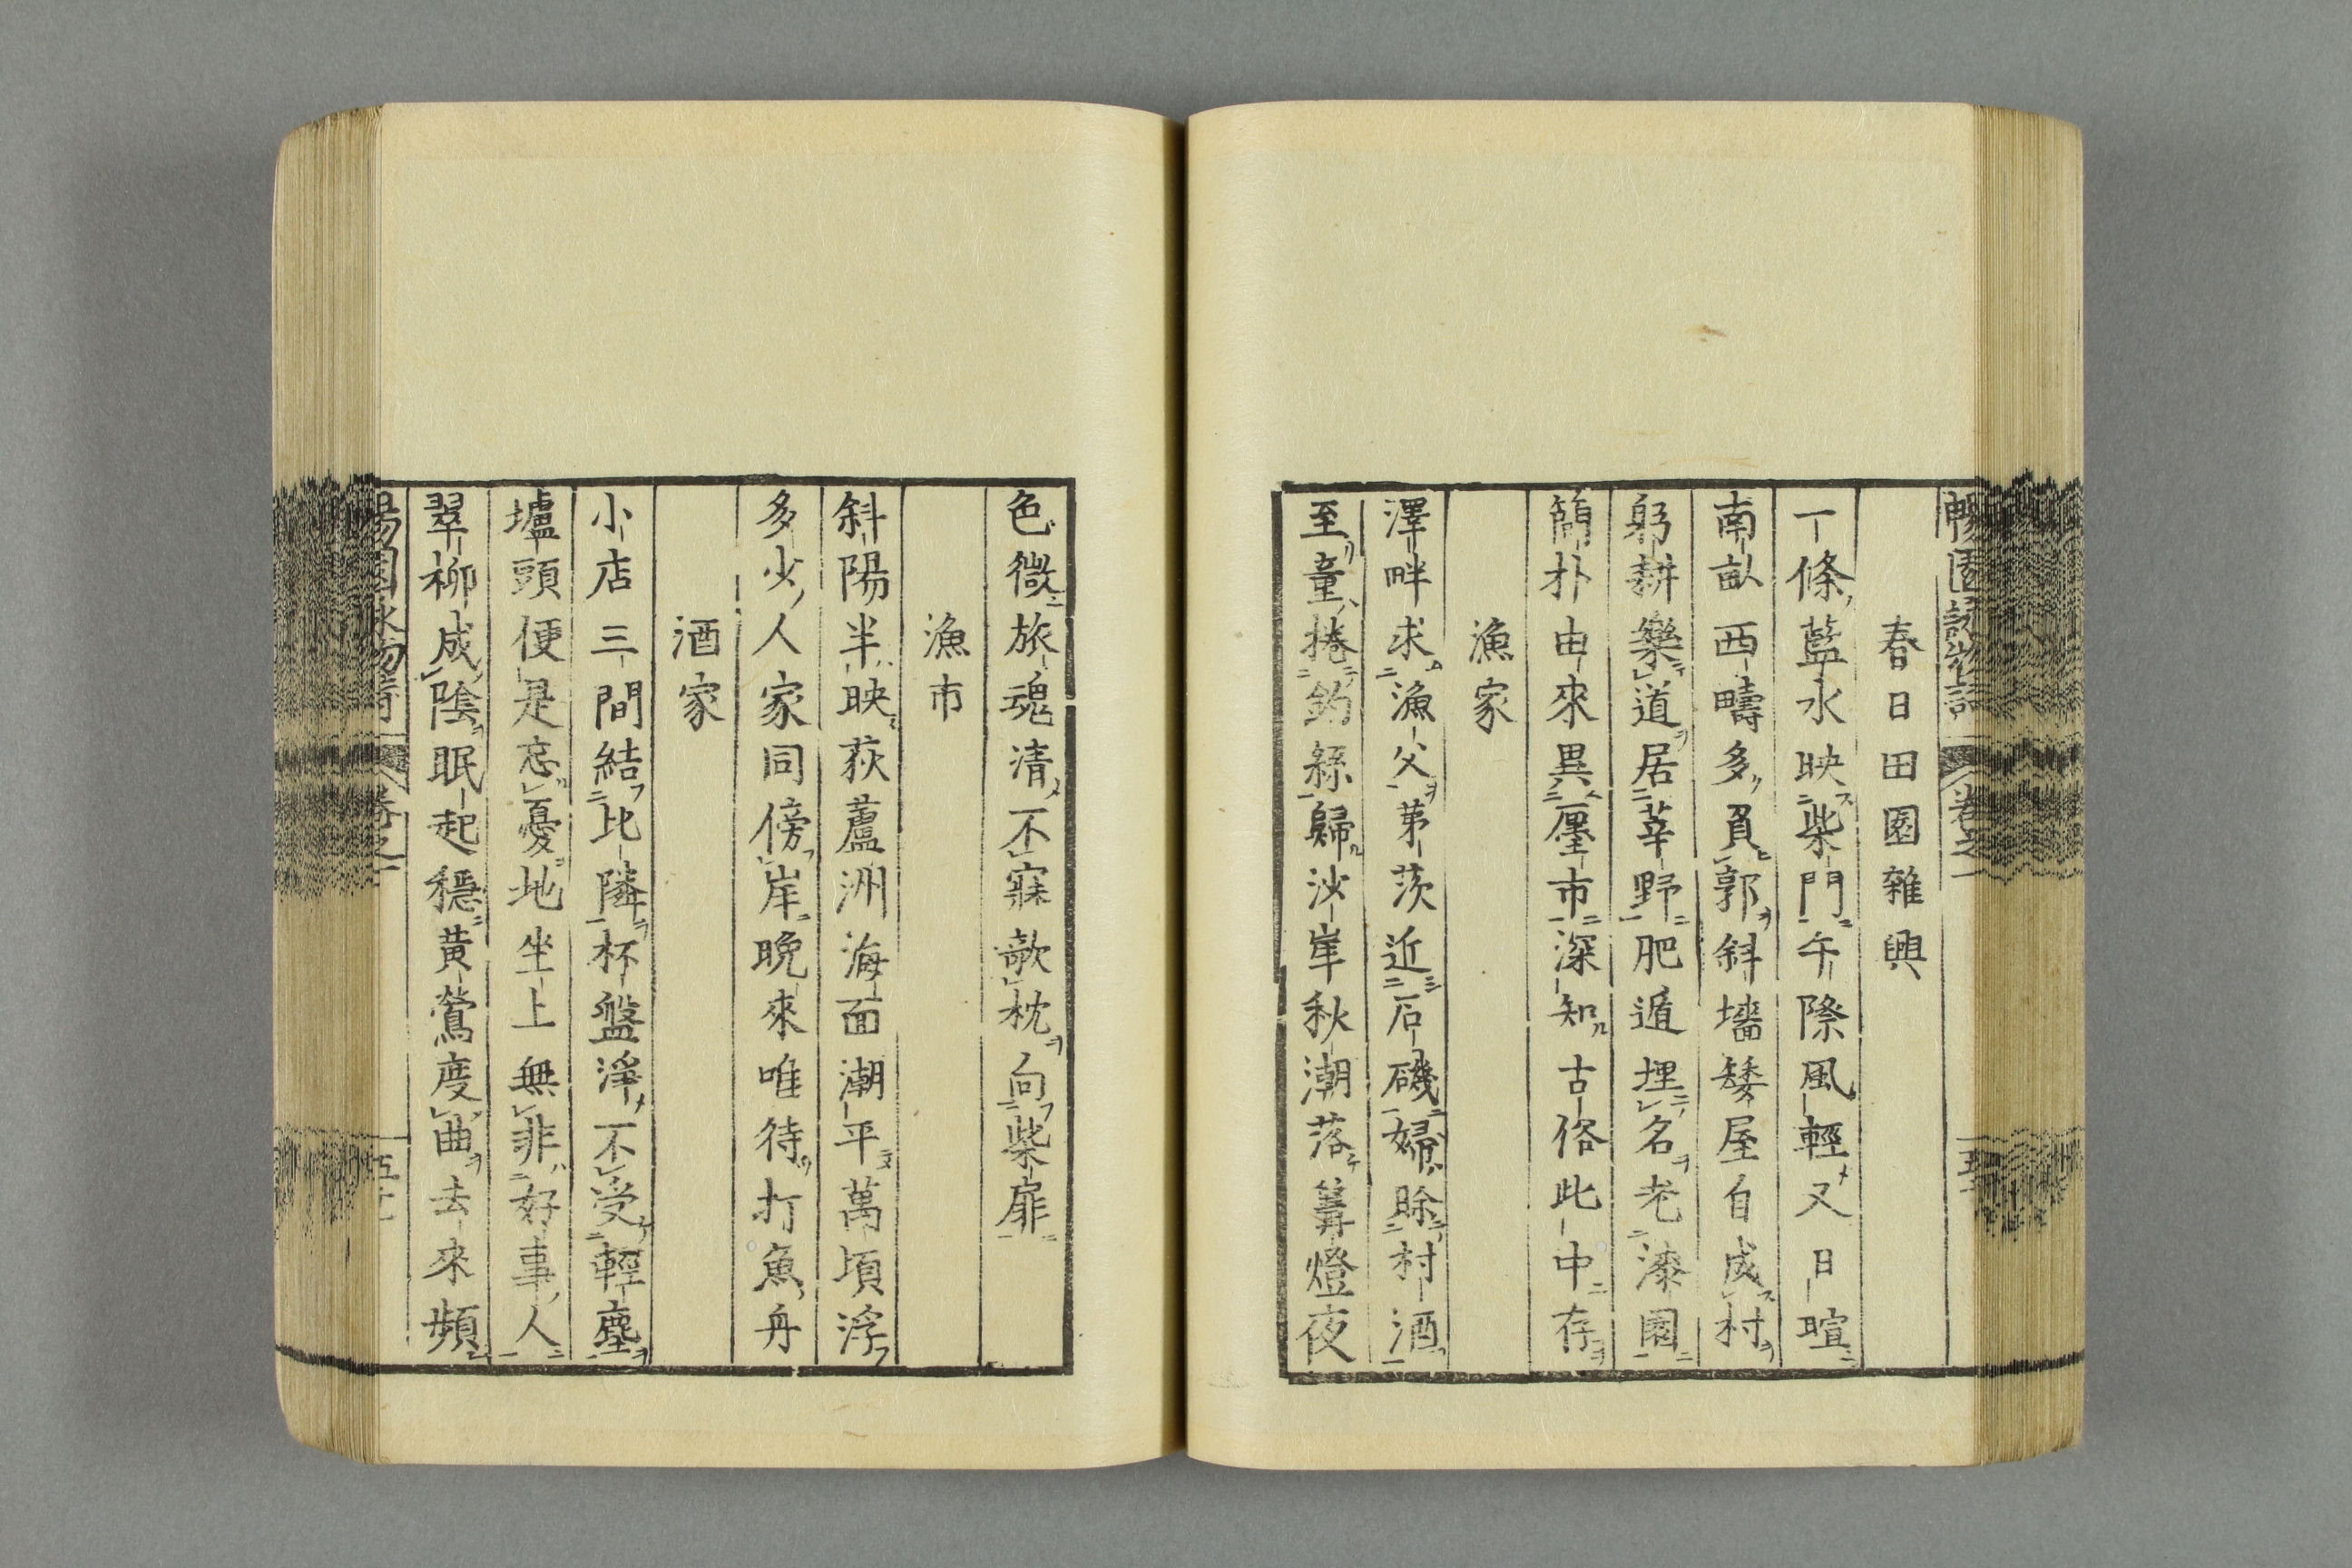 春日田園雜興
一條藍水映柴門午際風輕又日暄
南畝西疇多負郭斜墻矮屋自成村
躬耕樂道居莘野肥遁埋名老漆園
簡朴由來異厘市深知古俗此中存
漁家
澤畔求漁父茅茨近石磯婦賒村酒
至童捲釣絲歸沙岸秋潮落篝燈夜
色微旅魂清不寐欹枕向柴扉
漁市
斜陽半映荻蘆洲海面潮平萬頃浮
多少人家同傍岸晚來唯待打魚舟
酒家
小店三間結比隣杯盤淨不受輕塵
壚頭便是忘憂地坐上無非好事人
翠柳成陰眠起穩黃鶯度曲去來頻